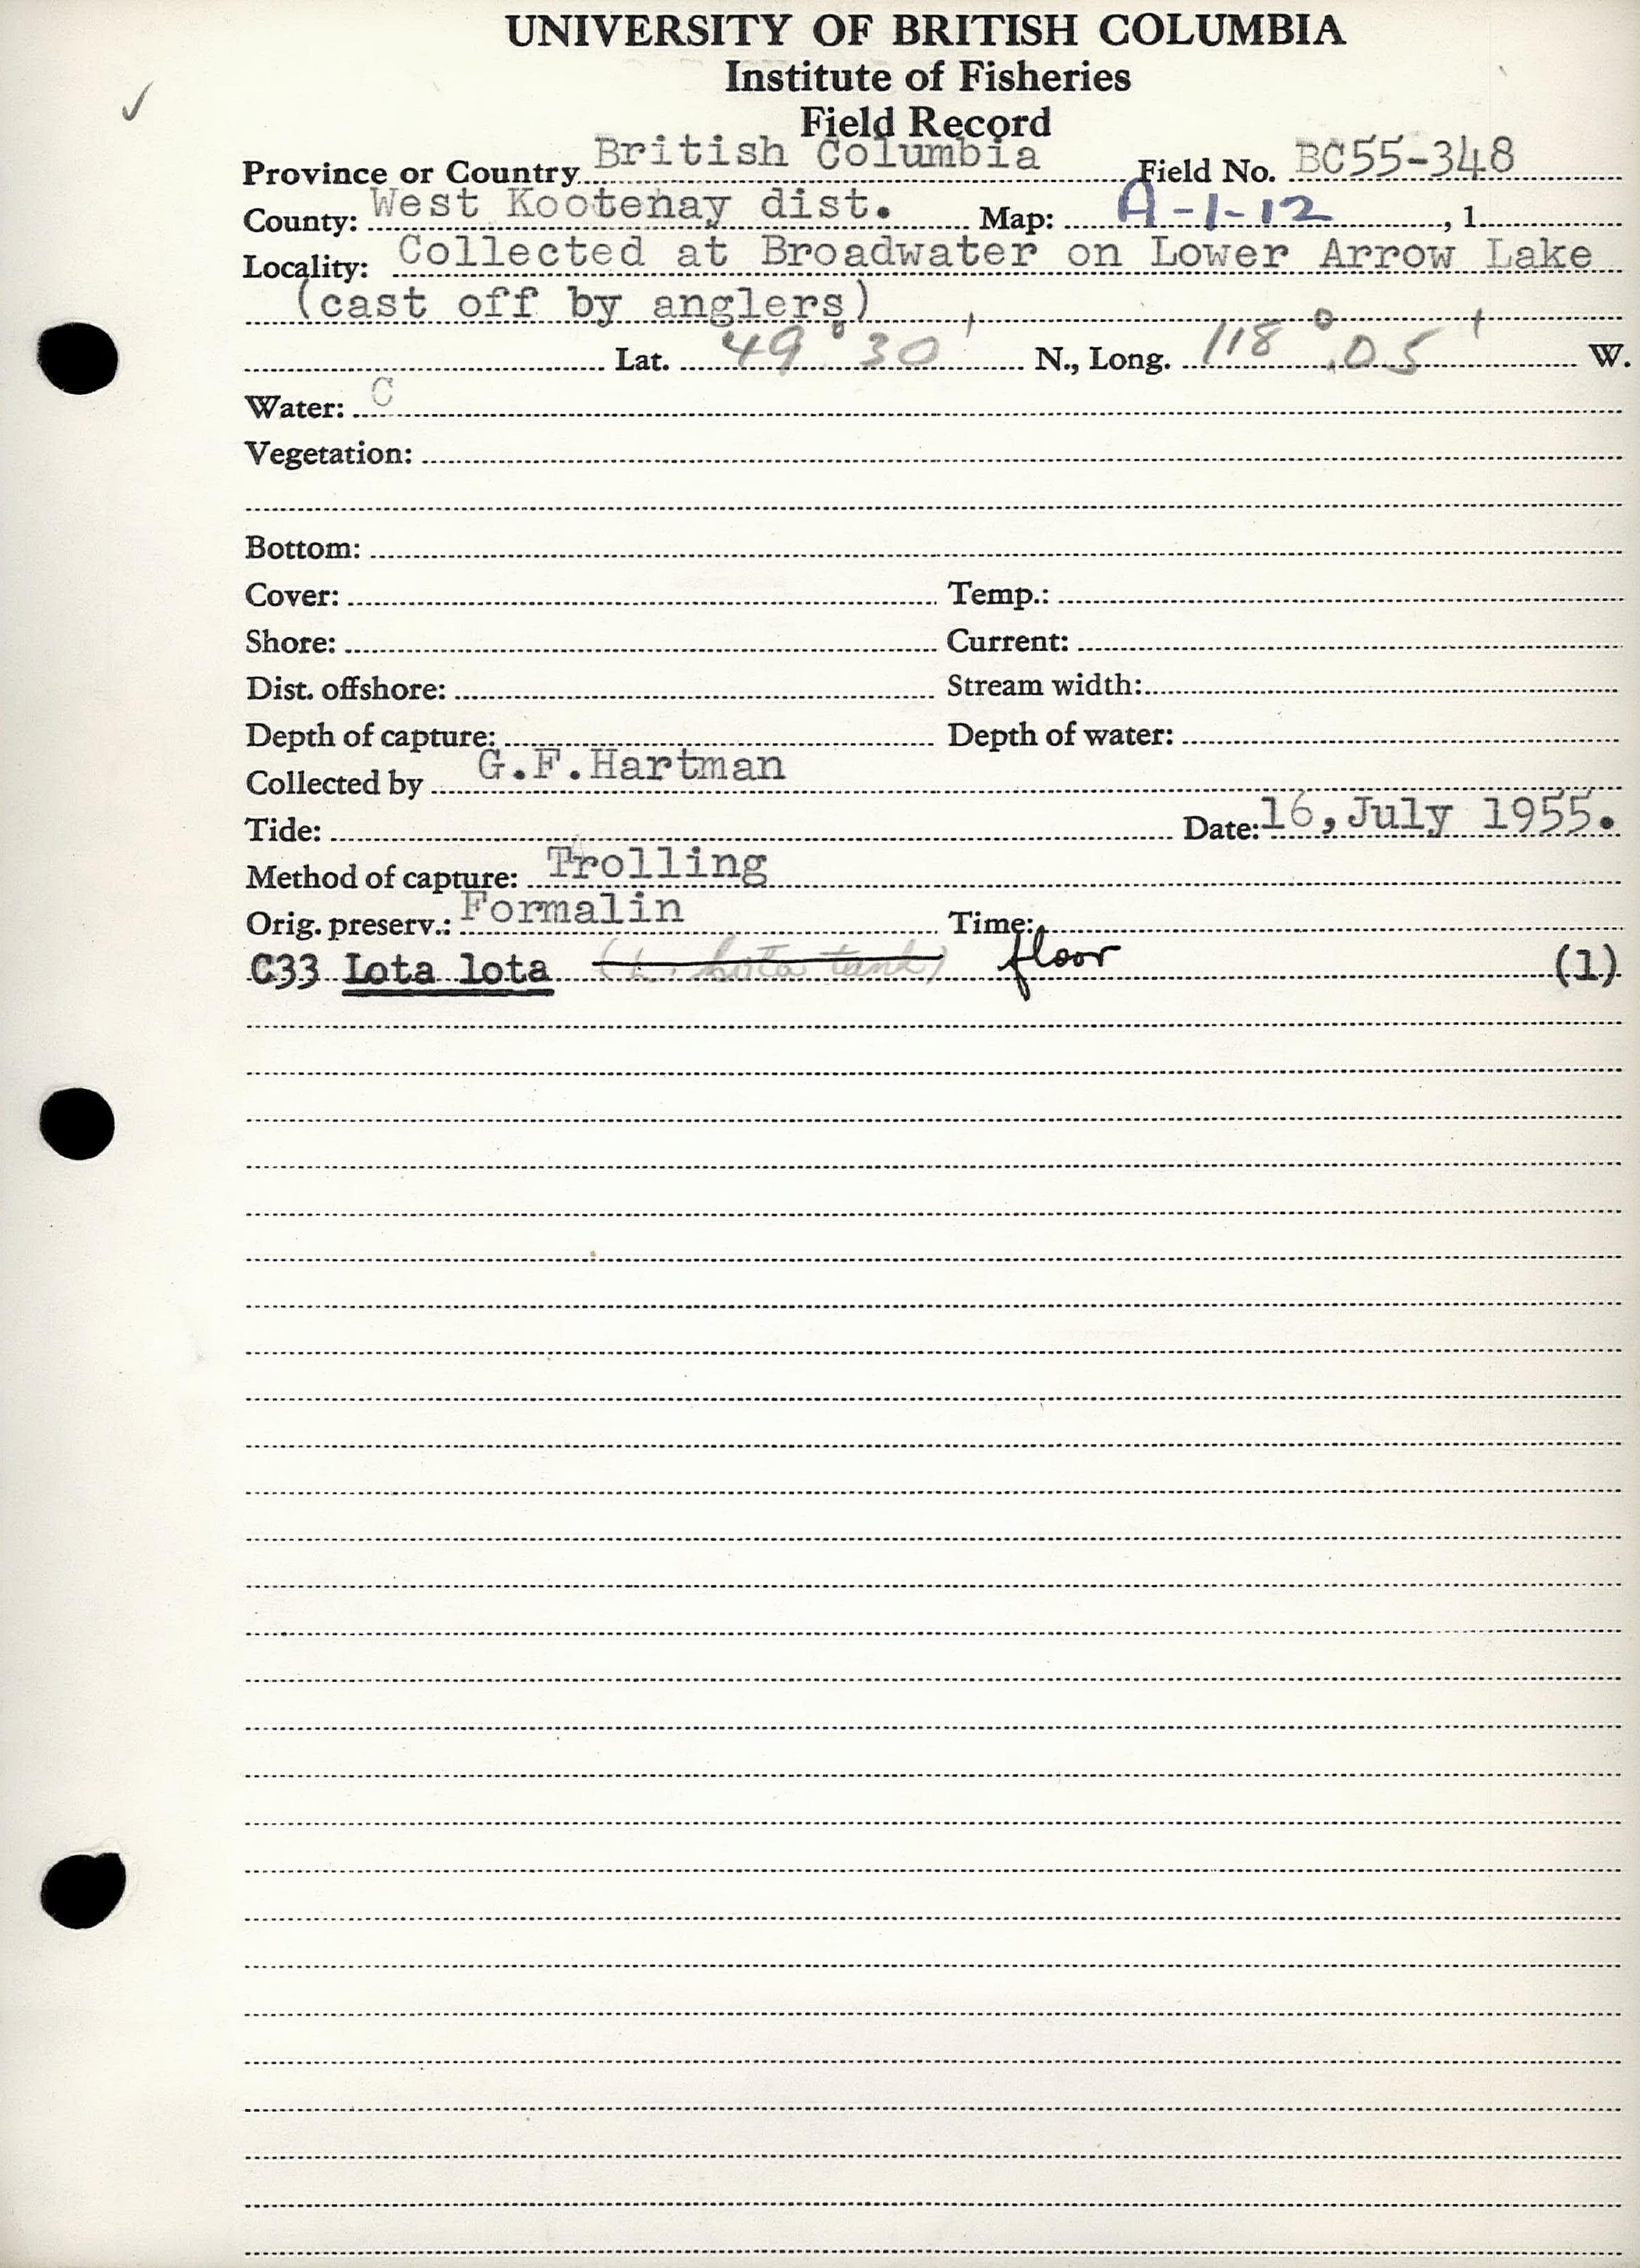 UNIVERSITY OF BRITISH COLUMBIA
Institute of Fisheries
Field Record
✓
Province or Country British Columbia Field No. BC55-348
County: West Kootenay dist. Map: A-1-12, 1
Locality: Collected at Broadwater on Lower Arrow Lake
(cast off by anglers)
Lat. 49° 30' N., Long. 118° 05' W.
Water: C
Vegetation:
Bottom:
Cover: Temp.:
Shore: Current:
Dist. offshore: Stream width:
Depth of capture: Depth of water:
Collected by G.F.Hartman
Tide: Date: 16, July 1955.
Method of capture: Trolling
Orig. preserv.: Formalin Time:
C33 Lota lota floor (1)